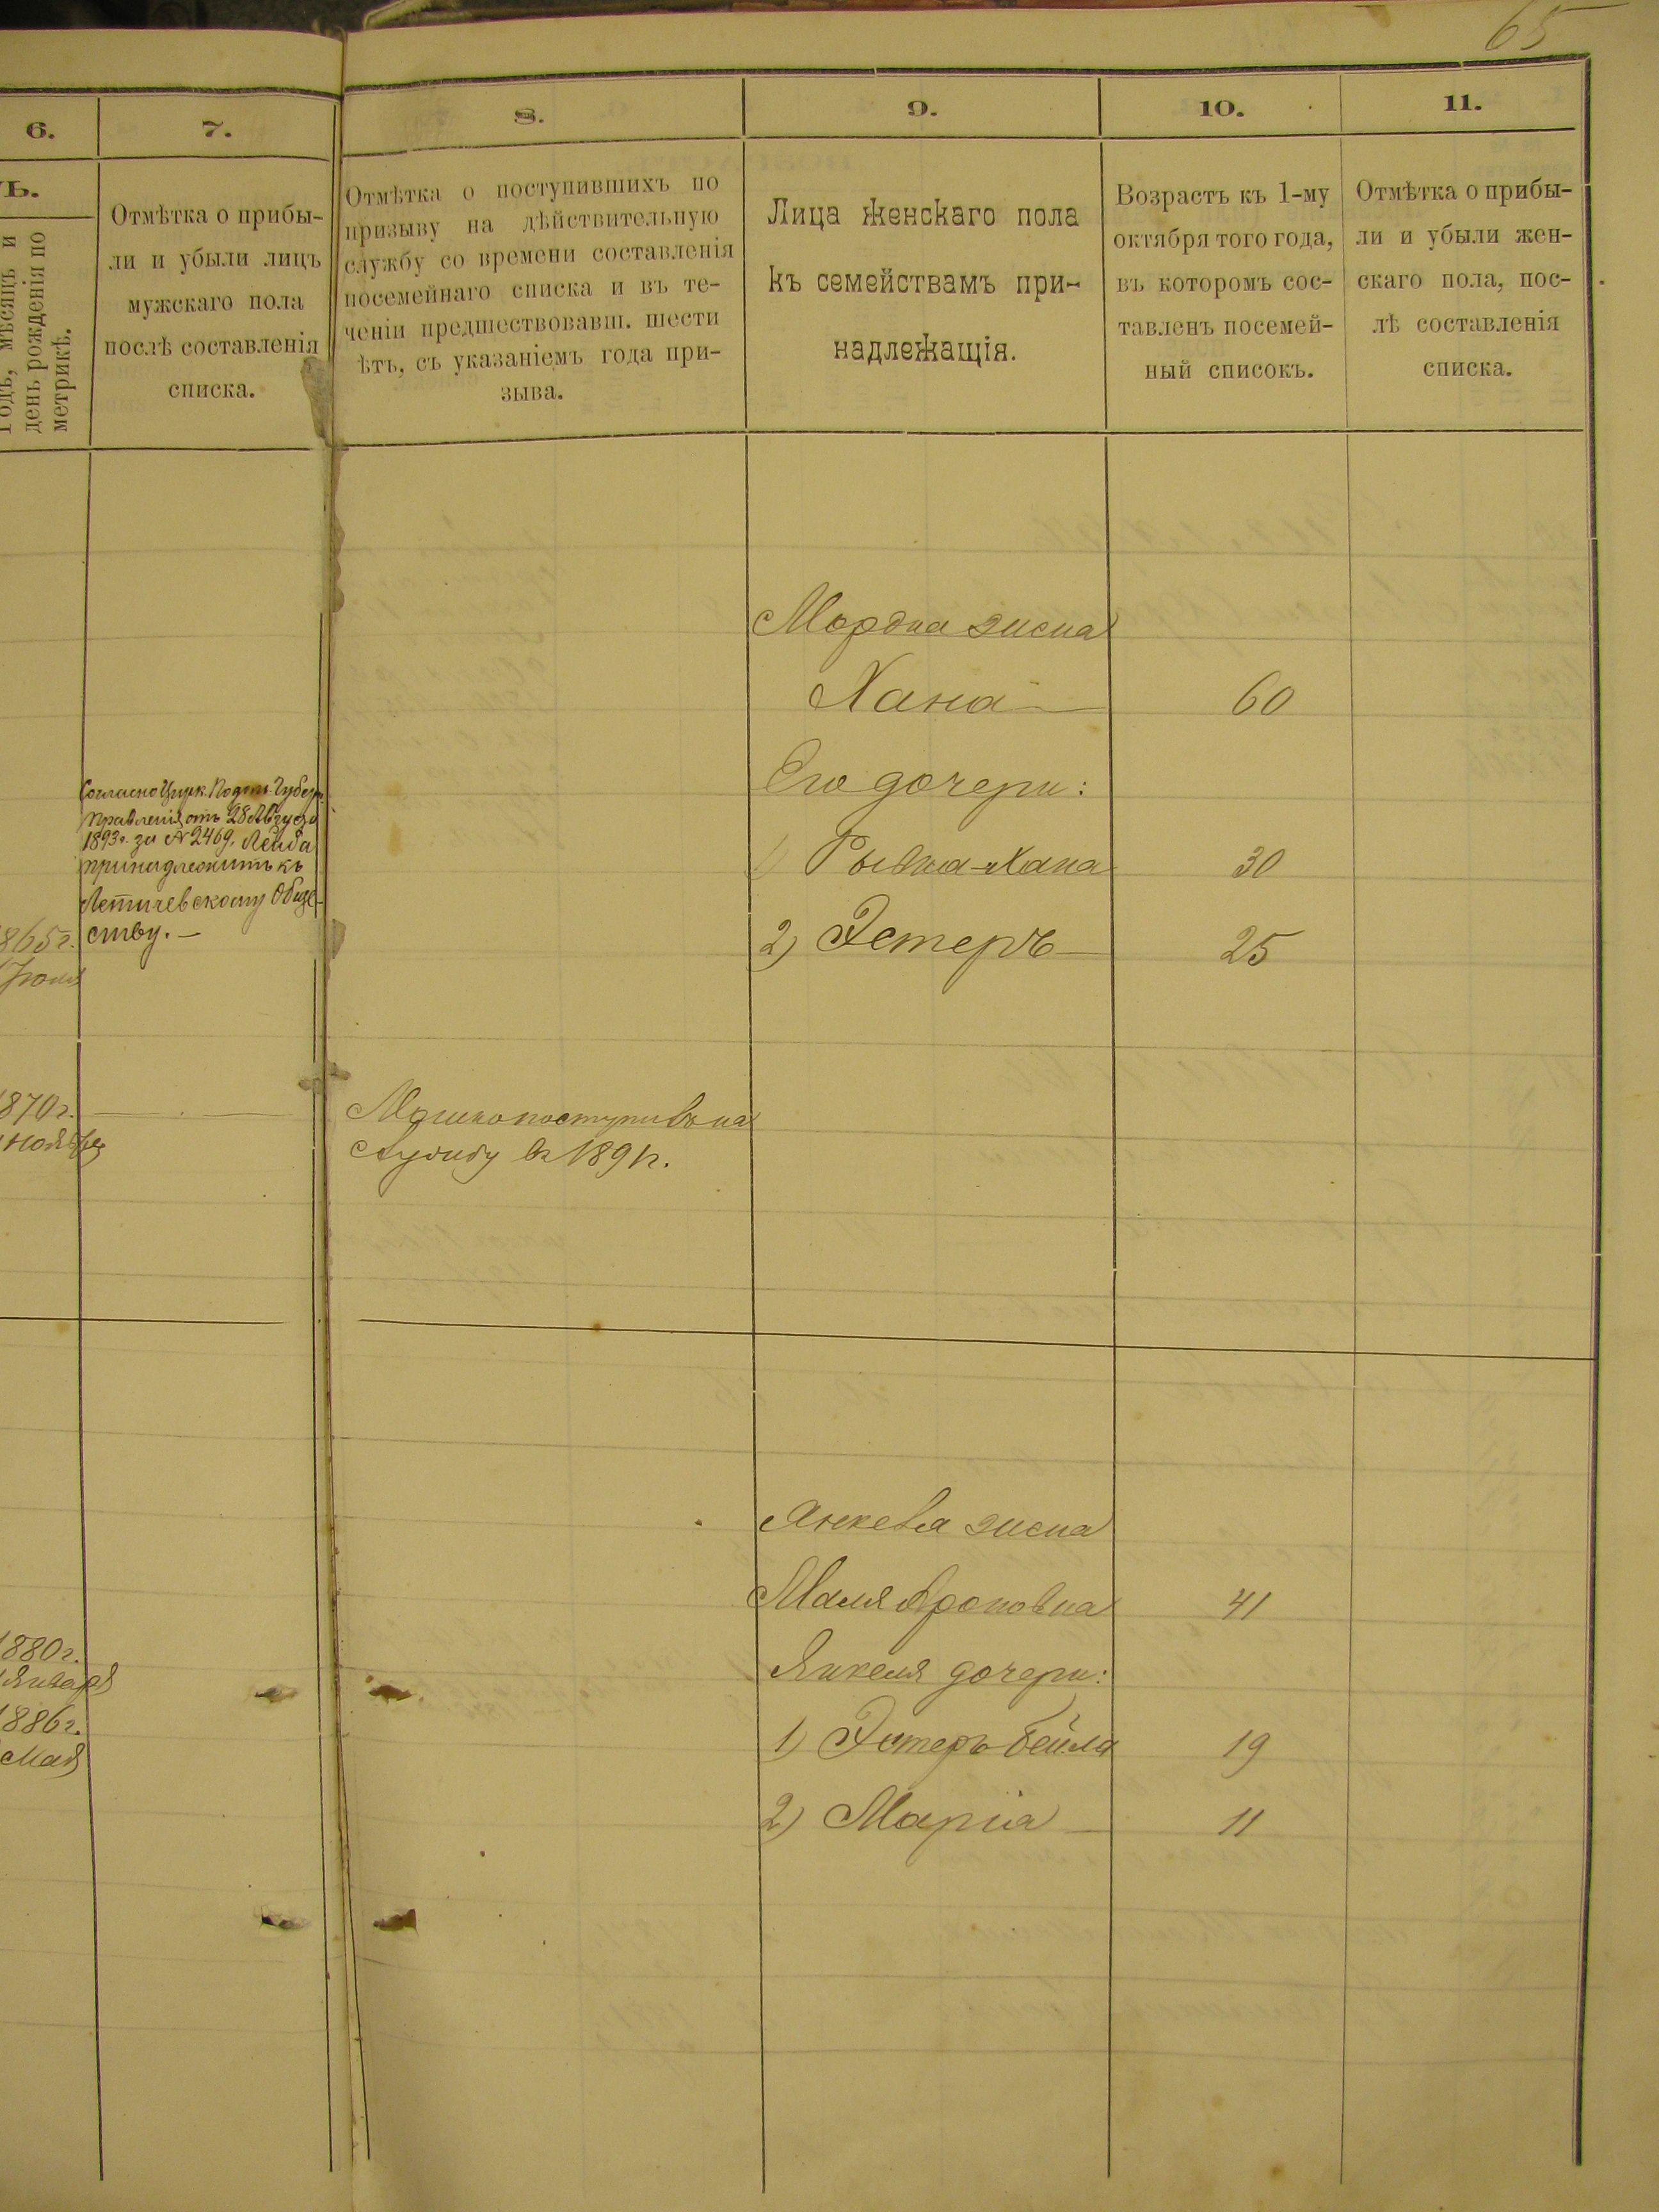 65
6.
7.
8.
9.
10.
11.
Ъ.
Годъ, мѣсяцъ и
день рожденія по
метрикѣ.
Отмѣтка о прибы-
ли и убыли лицъ
мужскаго пола
послѣ составленія
списка.
Отмѣтка о поступившихъ по
призыву на дѣйствительную
службу со времени составленія
посемейнаго списка и въ те-
ченіи предшествовавш. шести
ѣтъ, съ указаніемъ года при-
зыва.
Лица женскаго пола
къ семействамъ при-
надлежащія.
Возрастъ къ 1-му
октября того года,
въ которомъ сос-
тавленъ посемей-
ный списокъ.
Отмѣтка о прибы-
ли и убыли жен-
скаго пола, пос-
лѣ составленія
списка.
Мордка жена
Хана 60
Его дочери:
1) Рывка-Хана 30
2) Эстеръ 25
Согласно Цирк. Подол. Губерн.
Правленія отъ 28 Августа
1893 г. за № 2469, Лейба
принадлежитъ къ
Летичевскому Обще-
ству. —
865 г.
Іюня
1870 г.
Ноября
Мошко поступивъ на
службу въ 1891 г.
Янкеля жена
Маля Ароновна 41
Янкеля дочери:
1) Эстеръ Бейла 19
2) Марія 11
1880 г.
Января
1886 г.
Мая